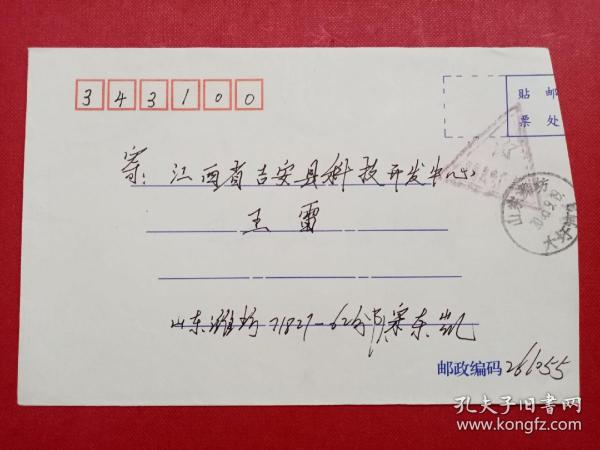 343100
贴邮
票处
寄:江西省吉安县科技开发中心
王雷
山东潍坊
山东潍坊71827-62分队 东凯
邮政编码 261055
孔夫子旧书网
www.kongfz.com